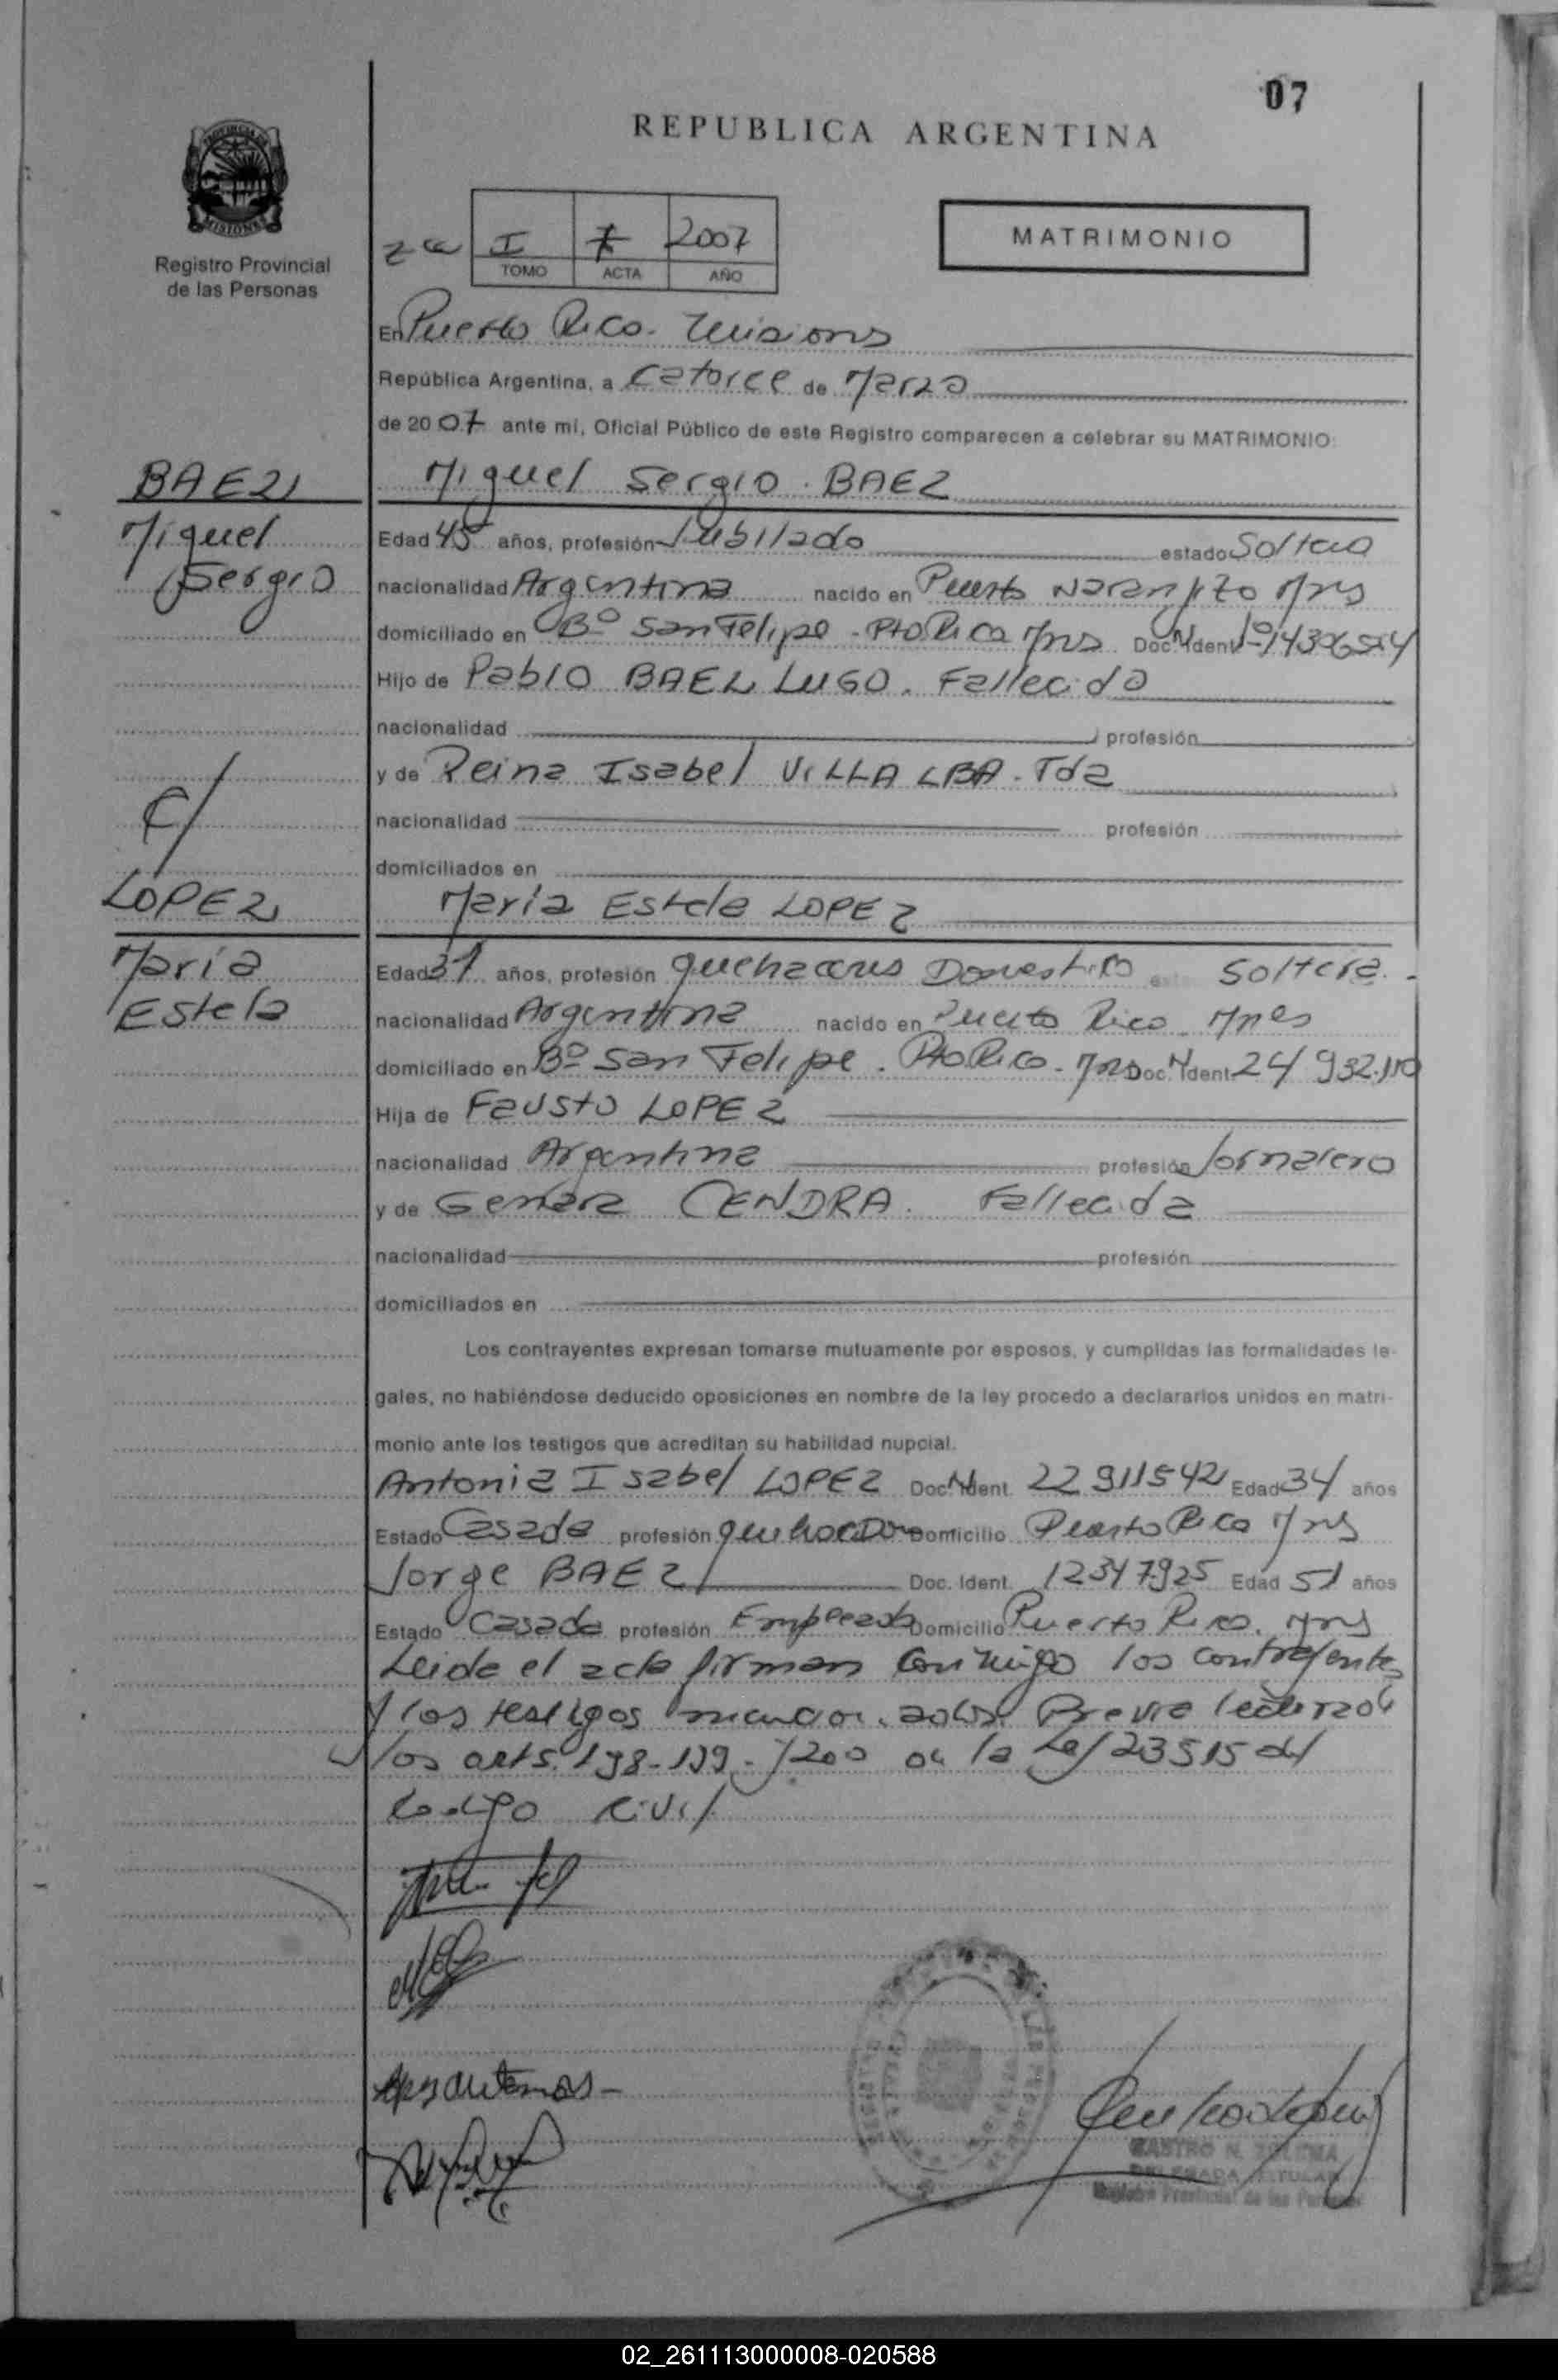 07
REPUBLICA ARGENTINA
Registro Provincial
de las Personas
I 7 2007
TOMO ACTA AÑO
MATRIMONIO
En Puerto Rico. Misiones
República Argentina, a Catorce de Marzo
de 2007 ante mí, Oficial Público de este Registro comparecen a celebrar su MATRIMONIO:
BAEZ
Miguel Sergio BAEZ
Miguel
Sergio
Edad 45 años, profesión Jubilado estado Soltero
nacionalidad Argentina nacido en Puerto Naranjito Mns
domiciliado en Bº San Felipe - Pto Rico Mns Doc. Ident.
Hijo de Pablo BAEZ LUGO. Fallecido
nacionalidad profesión
y de Reina Isabel VILLALBA. Fda
nacionalidad profesión
domiciliados en
C/
LOPEZ
Maria Estela LOPEZ
Maria
Estela
Edad 31 años, profesión quehaceres Domestico Soltera.
nacionalidad Argentina nacido en Puerto Rico. Mnes
domiciliado en Bº San Felipe. Pto Rico. Mns Doc. Ident. 24 932.110
Hija de Fausto LOPEZ
nacionalidad Argentina profesión Jornalero
y de Genara CENDRA. Fallecida
nacionalidad profesión
domiciliados en
Los contrayentes expresan tomarse mutuamente por esposos, y cumplidas las formalidades le-
gales, no habiéndose deducido oposiciones en nombre de la ley procedo a declararlos unidos en matri-
monio ante los testigos que acreditan su habilidad nupcial.
Antonia Isabel LOPEZ Doc. Ident. 22 911542 Edad 34 años
Estado Casada profesión Domicilio Puerto Rico Mns
Jorge BAEZ Doc. Ident. 12347925 Edad 51 años
Estado Casado profesión Empleado Domicilio Puerto Rico. Mns
Leida el acta firman conmigo los contrayentes
y los testigos mencionados. Previa lectura de
los arts. 198-199-y 200 de la Ley 23515 del
Codigo Civil
CASTRO N. ZULEMA
DELEGADA TITULAR
Registro Provincial de las Personas
02_261113000008-020588